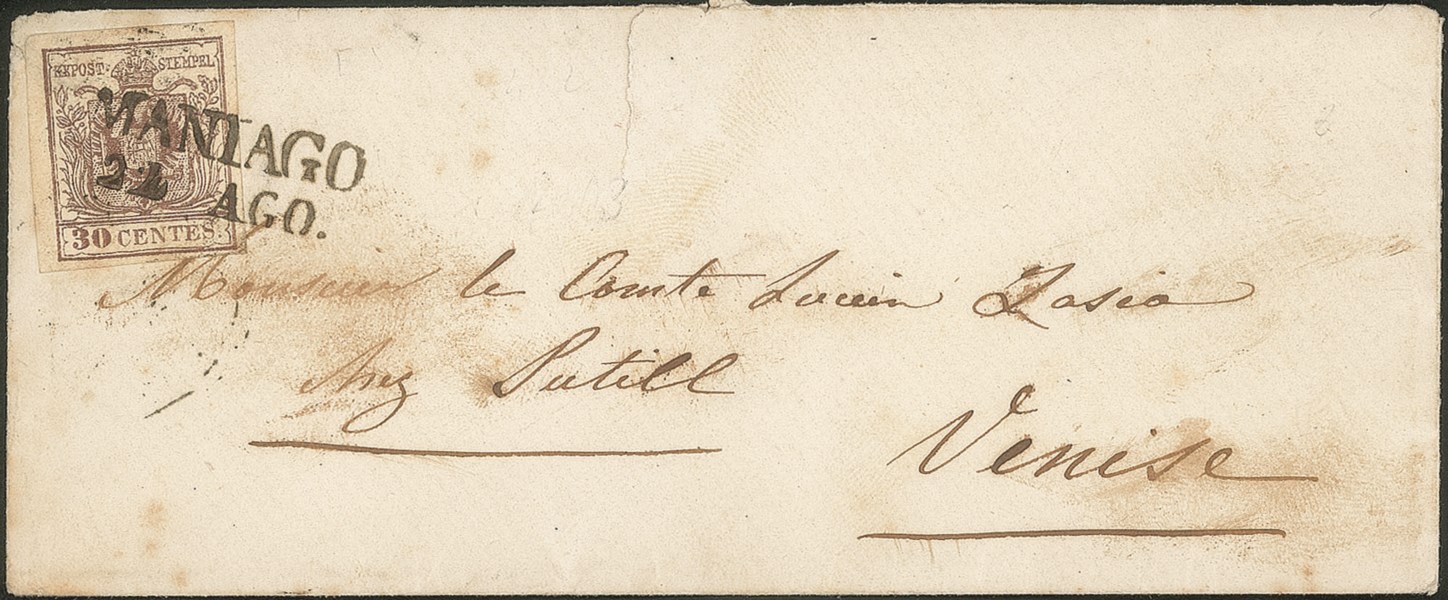 KKPOST-STEMPEL
MANIAGO
24 AGO.
30 CENTES.
Monsieur le Comte Lucien Zasio
Ing Putill
Venise